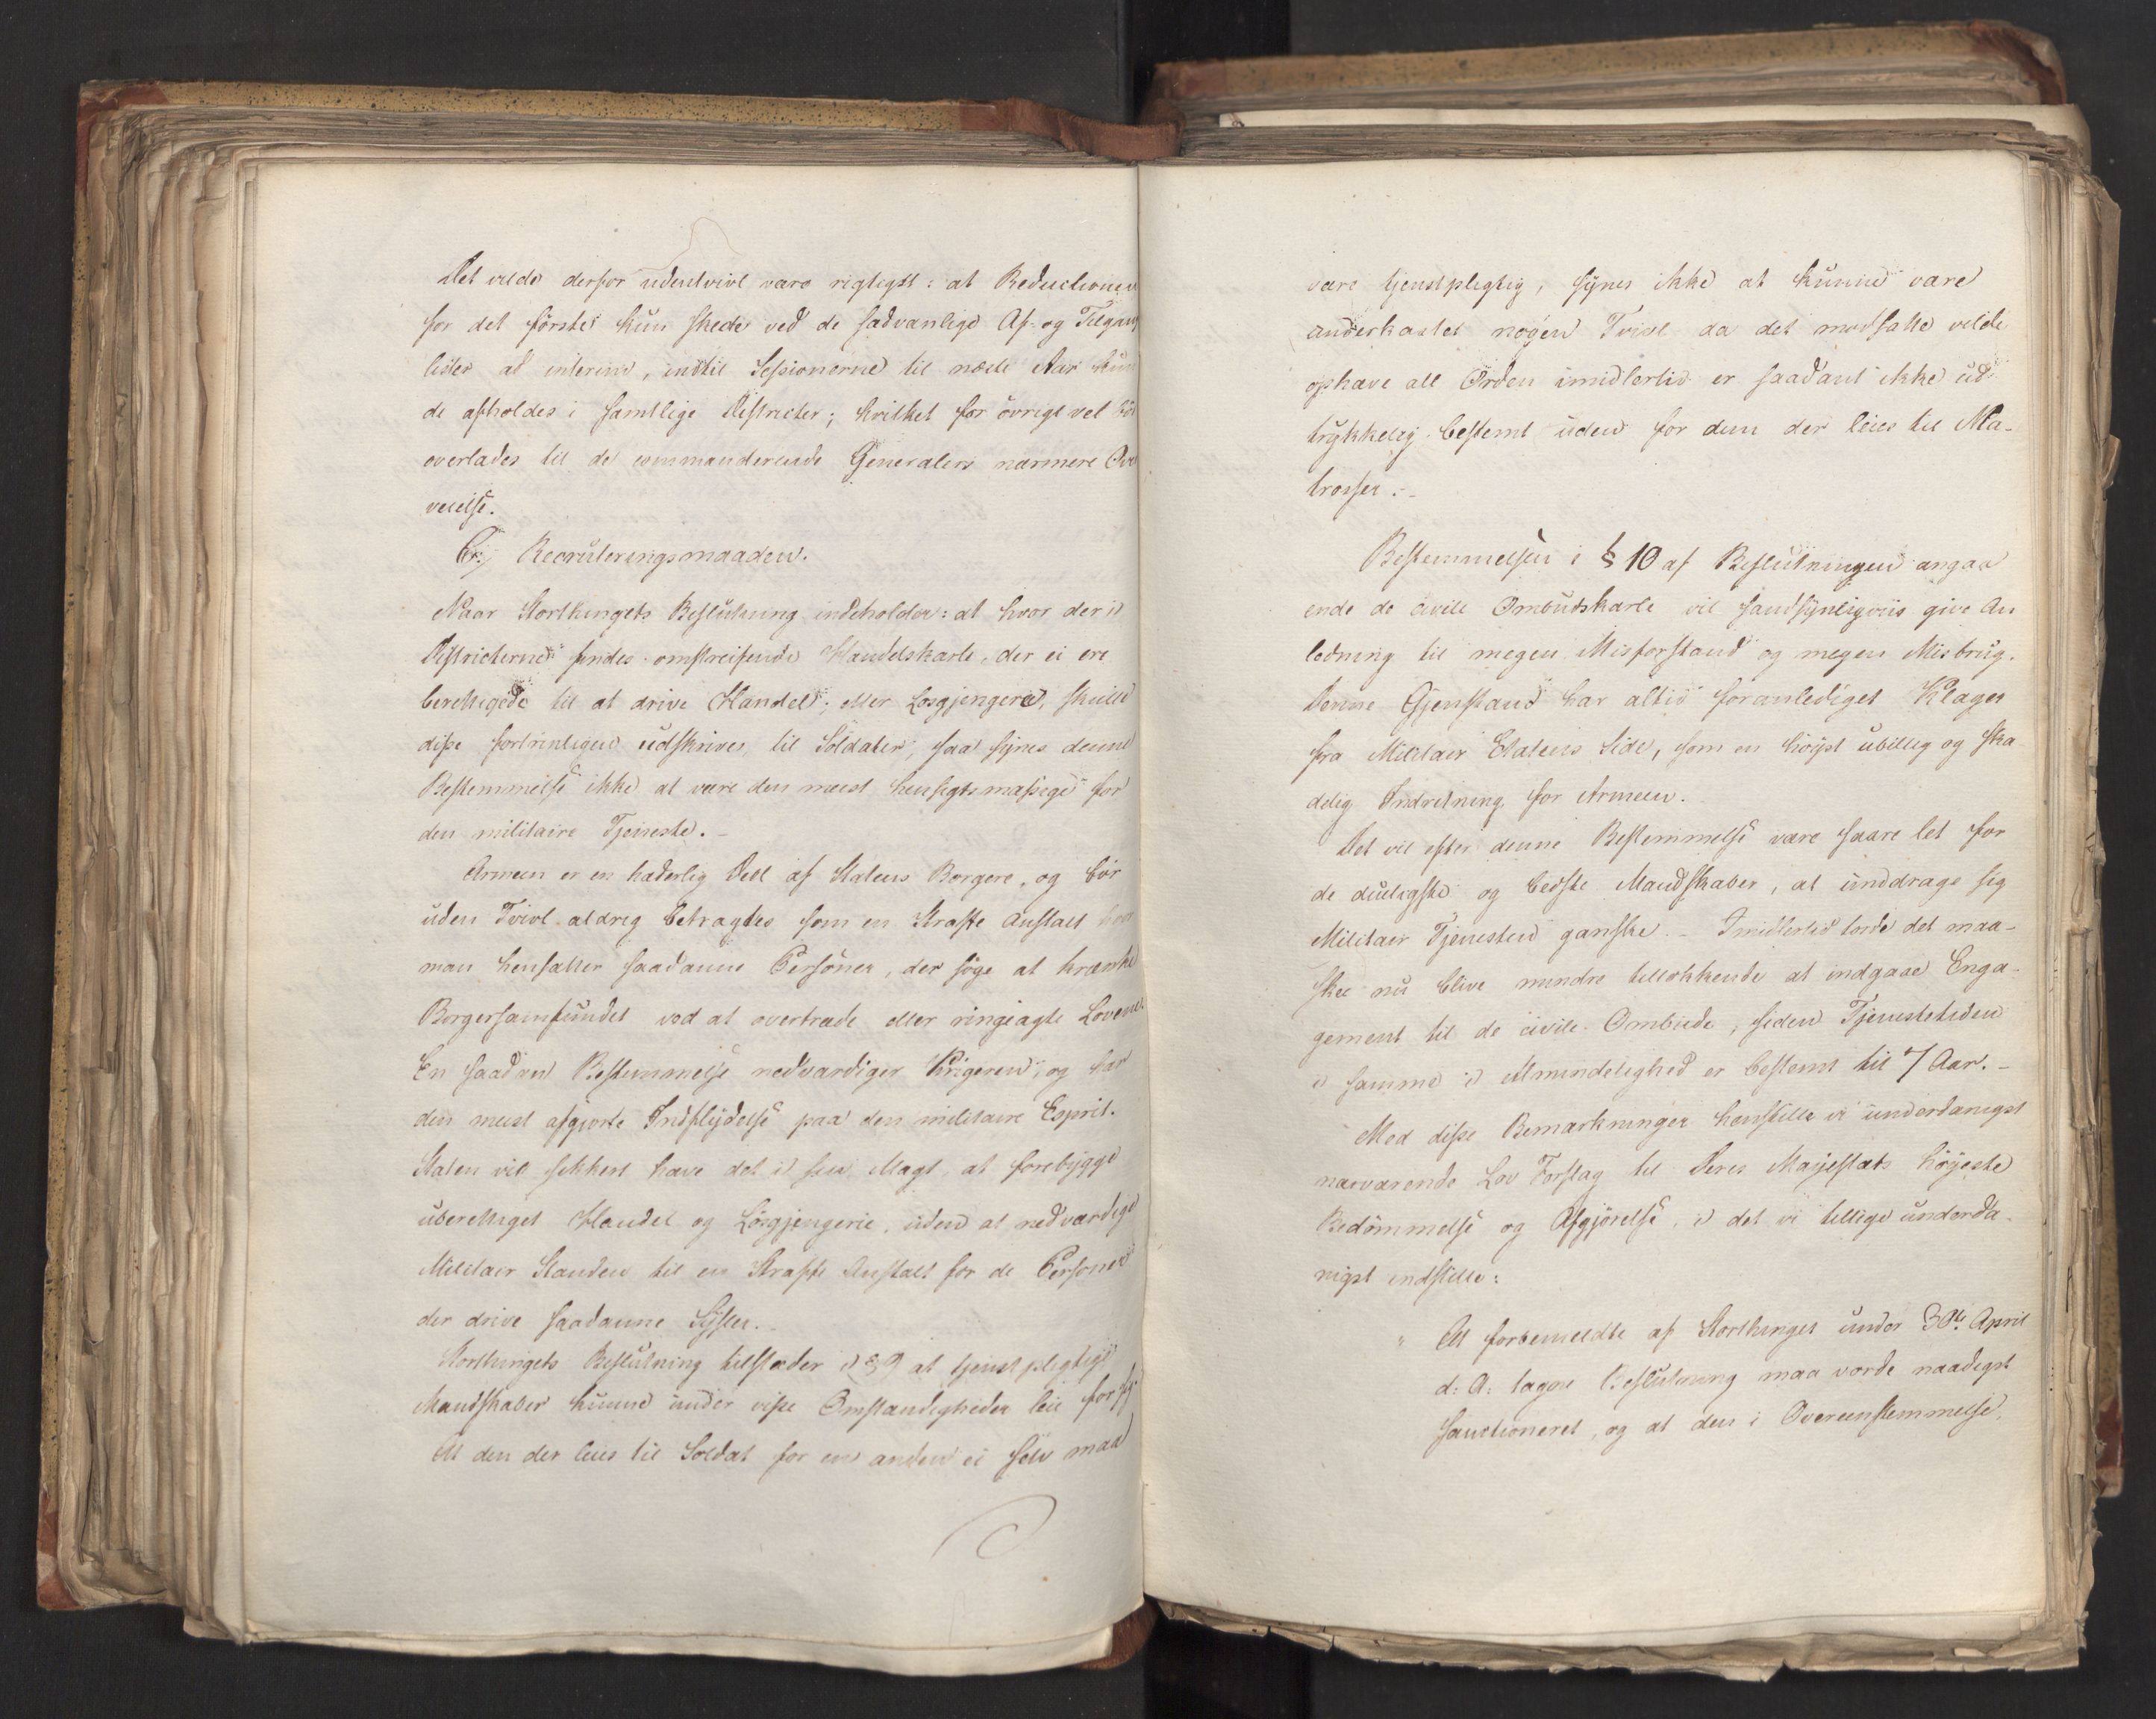 Det vilde derfor udentvivl være rigtigst: at Reductionen
for det förste kun skede ved de sædvanlige Af- og Tilgang
lister ad interim, indtil Sessionerne til næste Aar kun
de afholdes i samtlige Districter; hvilket for övrigt vel bör
overlades til de commanderende Generalers nærmere Over
veielse.
Recruteringsmaaden.
Naar Storthingets Beslutning indeholder: at hvor der i
Districterne findes omstreifende Handelskarle, der ei ere
berettigede til at drive Handel; eller Losgjengere, skulle
disse fortrinligen udskrives til Soldater, saa synes denne
Bestemmelse ikke at være den meest hensigtsmæssige for
den militaire Tjeneste. –
Armeen er en hæderlig Deel af Statens Borgere, og bör
uden Tvivl aldrig betragtes som en Straffe Anstalt hvor
man hensætter saadanne Personer, der söge at krænke
Borgersamfundet ved at overtræde eller ringeagte Lovene.
En saadan Bestemmelse nedværdiger Krigeren, og har
den meest afgjorte Indflydelse paa den militaire Esprit.
Staten vil sikkert have det i sin Magt, at forebygge
uberettiget Handel og Lösgjengerie, uden at nedværdige
Militair Standen til en Straffe Anstalt for de Personer
der drive saadanne Sysler. –
Storthingets Beslutning tilsteder i § 9 at tjenstpligtige
Mandskaber kunne under visse Omstændigheder leie for sig.
At den der leies til Soldat for en anden ei selv maa
være tjenstpligtig, synes ikke at kunne være
underkastet nogen Tvivl da det modsatte vilde
ophæve all Orden imidlertid er saadant ikke ud-
trykkelig bestemt uden for dem der leies til Ma-
trosser. –
Bestemmelsen i § 10 af Beslutningen angaa
ende de civile Ombudskarle vil sandsynligviis give An
ledning til megen Misforstand og megen Misbrug.
Denne Gjenstand har altid foranlediget Klager
fra Militair Etatens Side, som en höyst ubillig og ska
delig Indretning for Armeen.
Det vil efter denne Bestemmelse være saare let for
de dueligste og bedste Mandskaber, at unddrage sig
Militair Tjenesten ganske. – Imidlertid torde det maa-
skee nu blive mindre tillokkende at indgaae Enga-
gement til de civile Ombude, siden Tjenestetiden
i samme i Almindelighed er bestemt til 7 Aar. –
Med disse Bemærkninger henstille vi underdanigst
nærværende Lov Forslag til Deres Majestæts höyeste
Bedömmelse og Afgjörelse, i det vi tillige underda-
nigst indstille:
" At forbemeldte af Storthinget under 30te April
d: A: tagne Beslutning maa vorde naadigst
sanctioneret, og at den i Overeenstemmelse